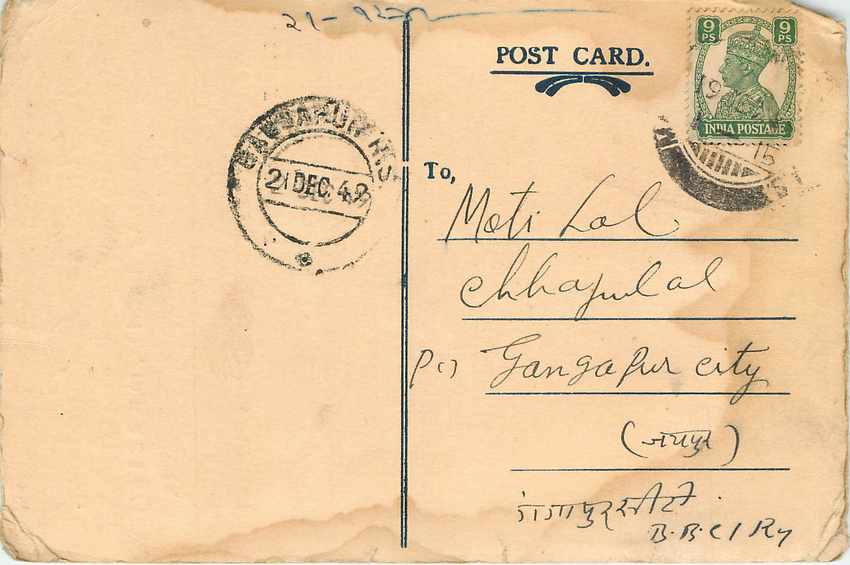 POST CARD.
9 PS 9 PS
INDIA POSTAGE
21 DEC. 48
To,
Moti Lal
Chhajulal
Gangapur city
(जयपुर)
गंगापुर सीटी
B.B.C.I Ry